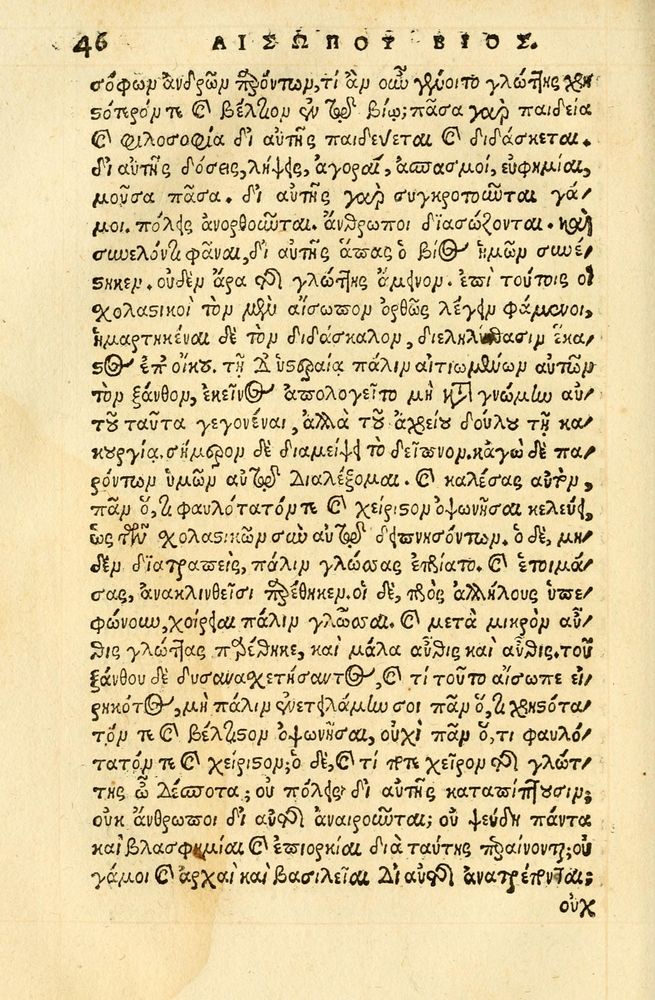 46 ΑΙΣΩΠΟΥ ΒΙΟΣ.
σόφων ἀνδρῶν παρόντων, τί ἂν οὖν γένοιτο γλώττης χρη
στότερόν τε καὶ βέλτιον ἐν τῷ βίῳ; πᾶσα γὰρ παιδεία
καὶ φιλοσοφία δι αὐτῆς παιδεύεται καὶ διδάσκεται.
δι αὐτῆς δόσεις, λήψεις, ἀγοραὶ, ἀσπασμοί, εὐφημίαι,
μοῦσα πᾶσα. δι αὐτῆς γὰρ συγκροτοῦνται γά/
μοι. πόλεις ἀνορθοῦνται. ἄνθρωποι διασώζονται. καὶ
συνελόντι φάναι, δι αὐτῆς ἅπας ὁ βίος ἡμῶν συνέ/
στηκεν. οὐδὲν ἄρα τῆς γλώττης ἄμεινον. ἐπὶ τούτοις οἱ
χολαστικοὶ τὸν μὲν αἴσωπον ὀρθῶς λέγειν φάμενοι,
ἡμαρτηκέναι δὲ τὸν διδάσκαλον, διεληλύθασιν ἕκα/
στος ἐπ οἴκου. τῇ δ ὑστεραίᾳ πάλιν αἰτιωμένων αὐτῶν
τὸν ξάνθον, ἐκεῖνος ἀπολογεῖτο μὴ κατὰ γνώμην αὐ/
τοῦ ταῦτα γεγονέναι, ἀλλὰ τοῦ ἀχρείου δούλου τῇ κα/
κουργίᾳ. σήμερον δὲ διαμείψει τὸ δεῖπνον. κἀγὼ δὲ πα/
ρόντων ὑμῶν αὐτῷ διαλέξομαι. καὶ καλέσας αὐτὸν,
πᾶν ὅ, τι φαυλότατόν τε καὶ χείριστον ὀψωνῆσαι κελεύει,
ὡς τῶν χολαστικῶν σὺν αὐτῷ δειπνησόντων. ὁ δὲ, μη/
δὲν διατραπεὶς, πάλιν γλώσσας ἐπρίατο. καὶ ἑτοιμά/
σας, ἀνακλινθεῖσι παρέθηκεν. οἱ δὲ, πρὸς ἀλλήλους ὑπε/
φώνουν, χοίρειαι πάλιν γλῶσσαι. καὶ μετὰ μικρὸν αὖ/
θις γλώττας παρέθηκε, καὶ μάλα αὖθις καὶ αὖθις. τοῦ
ξάνθου δὲ δυσανασχετήσαντος, καὶ τί τοῦτο αἴσωπε εἰ/
ρηκότος, μὴ πάλιν ἐνετειλάμην σοι πᾶν ὅ, τι χρηστότα/
τόν τε καὶ βέλτιστον ὀψωνῆσαι, οὐχὶ πᾶν ὅ, τι φαυλό/
τατόν τε καὶ χείριστον; ὁ δὲ, καὶ τί ποτε χεῖρον τῆς γλώτ/
της ὦ δέσποτα; οὐ πόλεις δι αὐτῆς καταπίπτουσιν;
οὐκ ἄνθρωποι δι αὐτῆς ἀναιροῦνται; οὐ ψευδῆ πάντα
καὶ βλασφημίαι καὶ ἐπιορκίαι διὰ ταύτης περαίνονται; οὐ
γάμοι καὶ ἀρχαὶ καὶ βασιλεῖαι δι αὐτῆς ἀνατρέπονται;
οὐχ